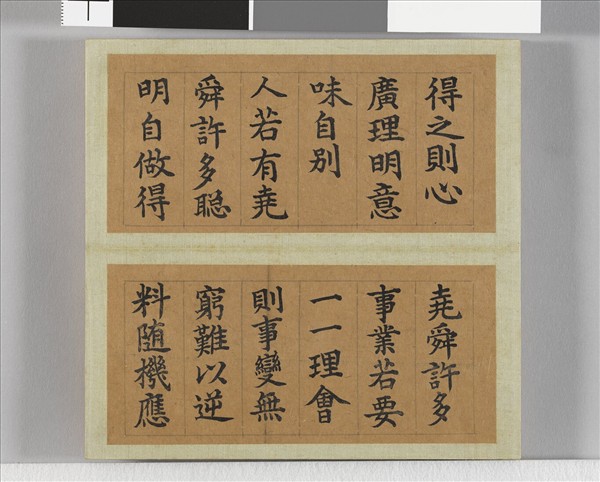 得之則心
廣理明意
味自別
人若有堯
舜許多聡
明自做得
堯舜許多
事業若要
一一理會
則事變無
窮難以逆
料随機應